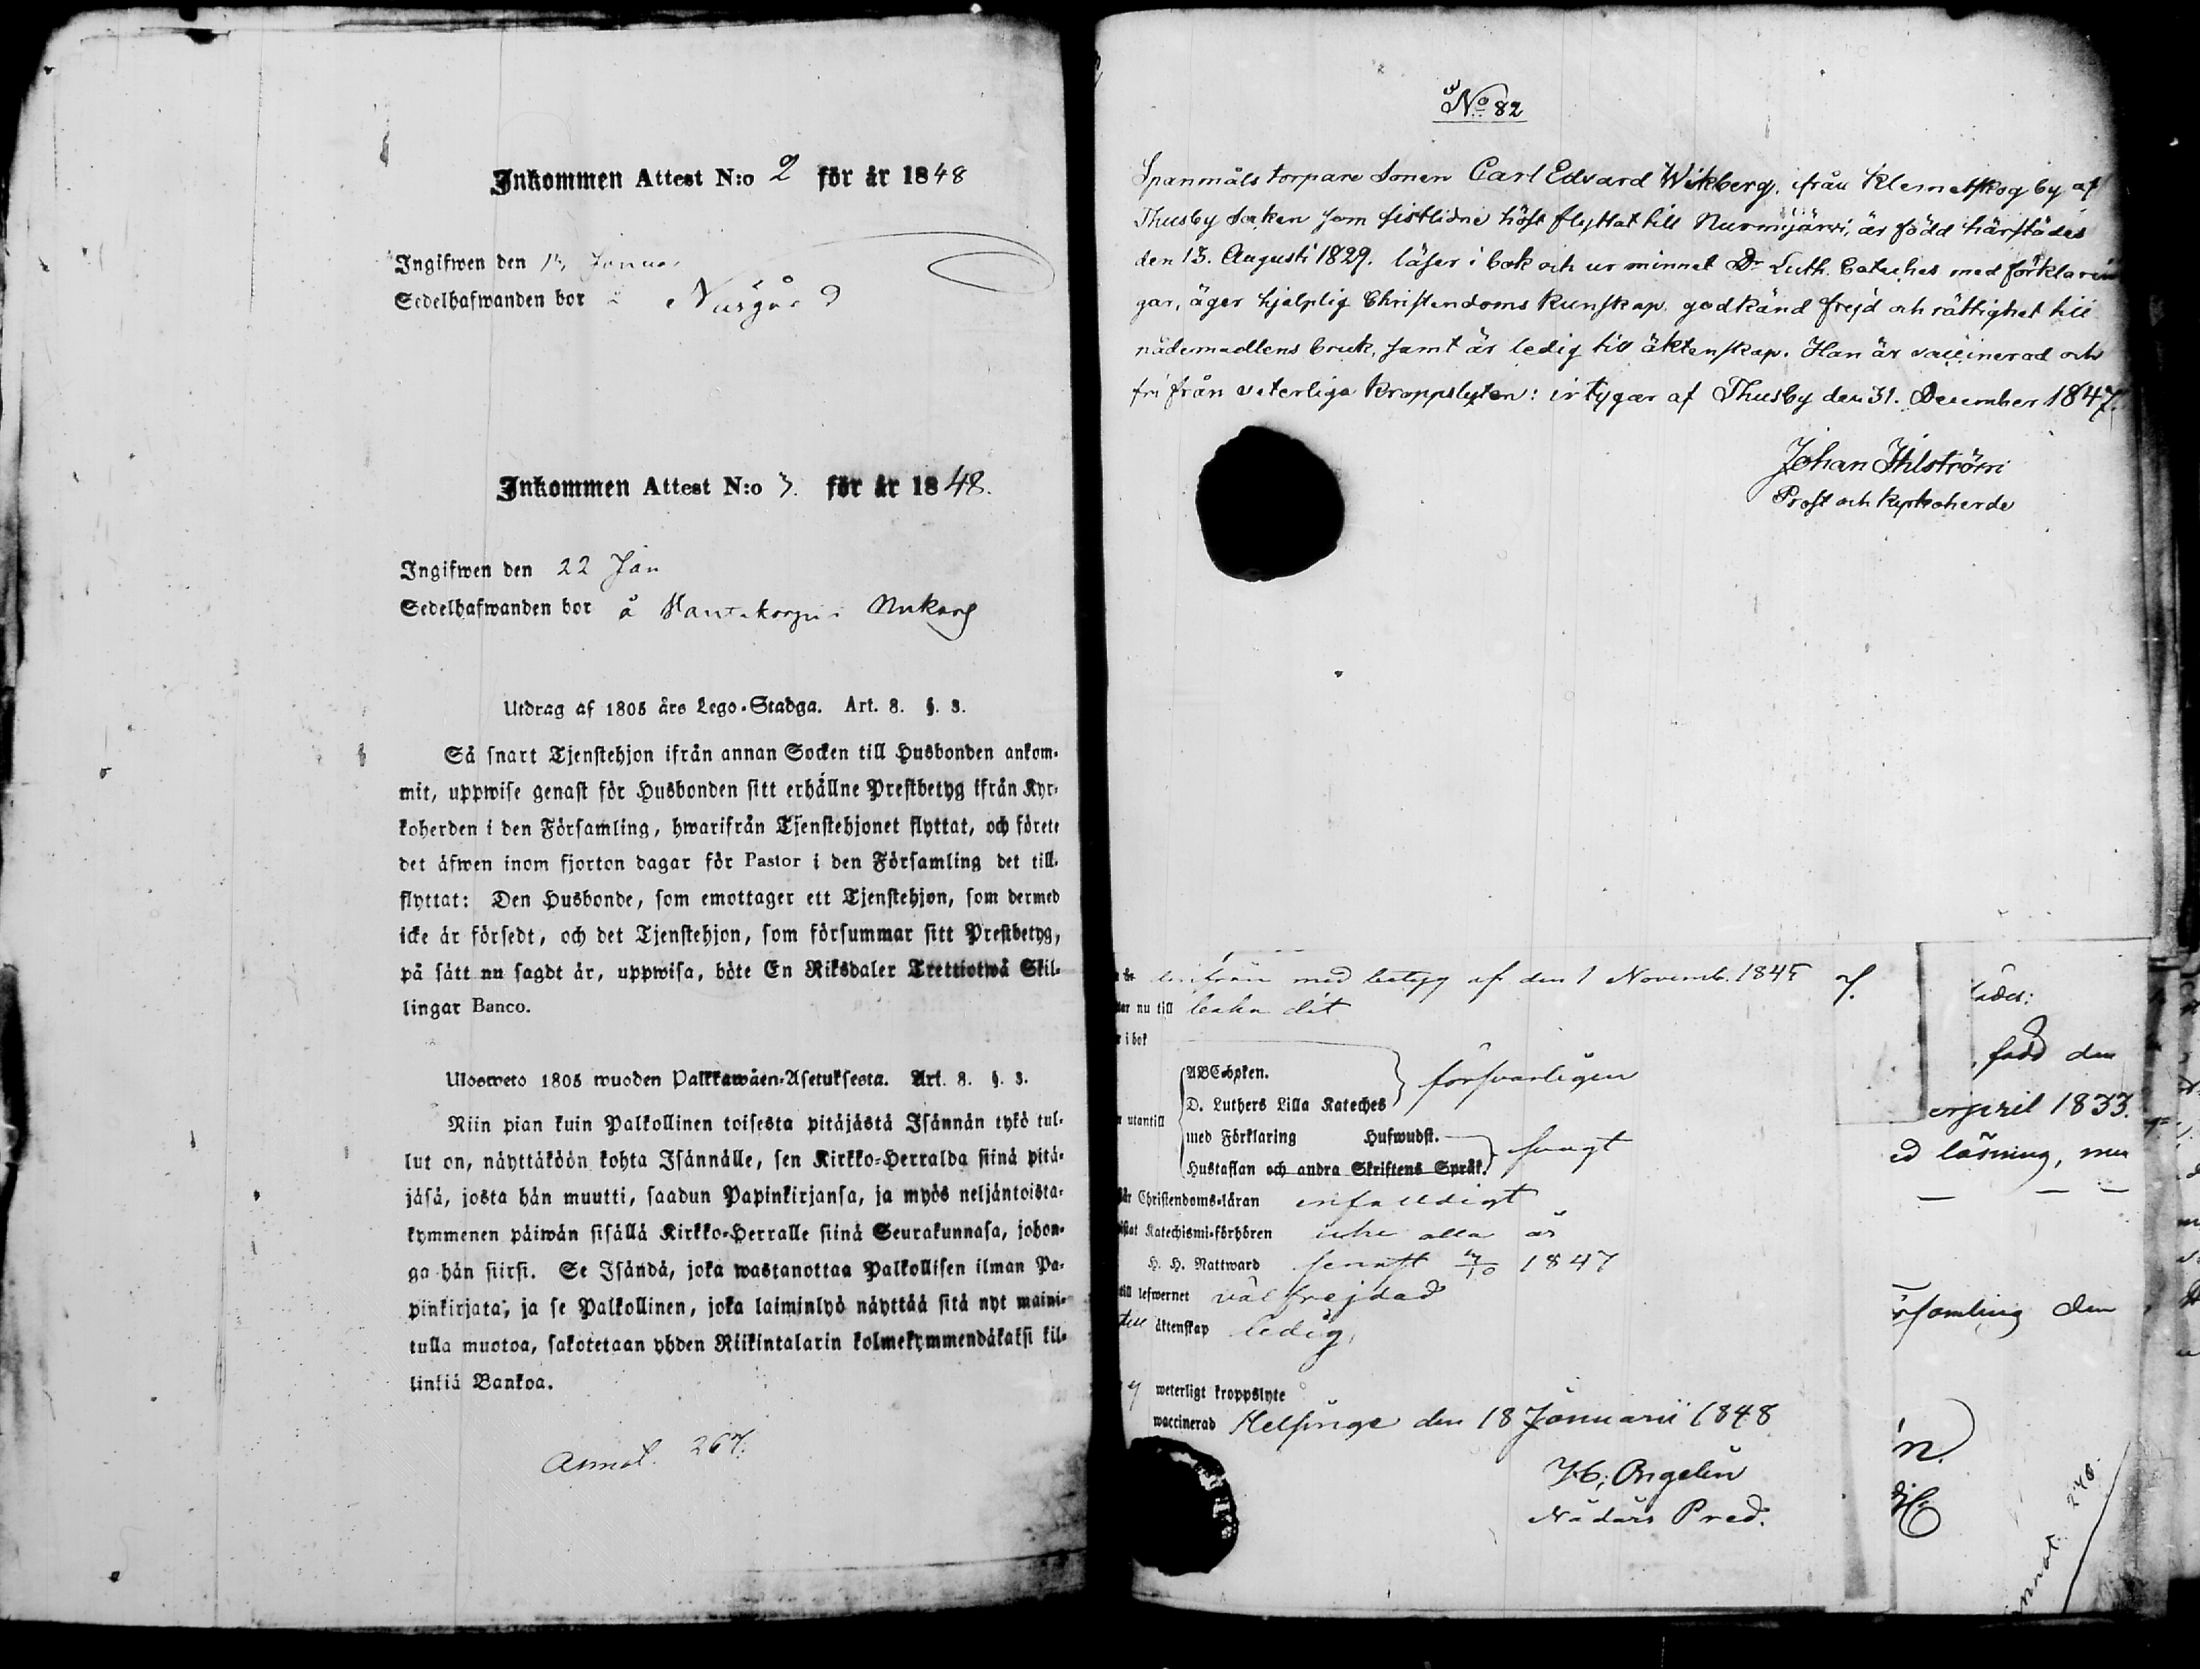 Inkommen Attest N:o 2 för år 1848
Ingifwen den Januar
Sedelhafwanden bor
Inkommen Attest N:o 3. för år 1848.
Ingifwen den 22 Jan
Sedelhafwanden bor å Nukary
Utdrag af 1805 års Lego-Stadga. Art. 8. §. 3.
Så snart Tjenstehjon ifrån annan Socken till Husbonden ankom-
mit, uppwise genast för Husbonden sitt erhållne Prestbetyg ifrån Kyr-
koherden i den Församling, hwarifrån Tjenstehjonet flyttat, och förete
det äfwen inom fjorton dagar för Pastor i den Församling det till-
flyttat: Den Husbonde, som emottager ett Tjenstehjon, som dermed
icke är försedt, och det Tjenstehjon, som försummar sitt Prestbetyg,
på sätt nu sagdt är, uppwisa, böte En Riksdaler Trettiotwå Skil-
lingar Banco.
Ulosweto 1805 wuoden Palkkawäen-Asetuksesta. Art. 8. §. 3.
Niin pian kuin Palkollinen toisesta pitäjästä Isännän tykö tul-
lut on, näyttäköön kohta Isännälle, sen Kirkko-Herralda siinä pitä-
jäsä, josta hän muutti, saadun Papinkirjansa, ja myös neljäntoista-
kymmenen päiwän sisällä Kirkko-Herralle siinä Seurakunnasa, johon-
ga hän siirsi. Se Isändä, joka wastanottaa Palkollisen ilman Pa-
pinkirjata, ja se Palkollinen, joka laiminlyö näyttää sitä nyt maini-
tulla muotoa, sakotetaan yhden Riikintalarin kolmekymmendäkaksi kil-
linkiä Bankoa.
Annot. 267.
No 82
Spanmåls torpare Sonen Carl Edvard Wikberg, ifrån Klemetskog by af
Thusby Socken som sistlidne höst flyttat till Nurmijärvi, är född härstädes
den 13. Augusti 1829. läser i bok och ur minnet Dr Luth. Cateches med förklarin
gar, äger hjelplig Christendoms kunskap, godkänd frejd och rättighet till
nådemedlens bruk, samt är ledig till äktenskap. Han är vaccinerad och
fri från veterliga kroppslyten: intygar af Thusby den 31. December 1847.
Johan Ihlström
Prost och Kyrkoherde
med betyg af den 1 Novemb. 1845
nu till dit
i bok
ABC-boken.
D. Luthers Lilla Kateches försvarligen
utantill
med Förklaring Hufwudst.
Hustaflan och andra Skriftens Språk. svagt
Christendoms-läran enfaldigt
Katechismi-förhören icke alla år
H. H. Nattward senast 1847
lefwernet välfrejdad
till äktenskap ledig,
ej weterligt kroppslyte
waccinerad Helsinge den 18 Januarii 1848
H. Ongelin
Nådårs Pred.
född den
april 1833.
läsning, men
församling den
n.
Annot. 248.